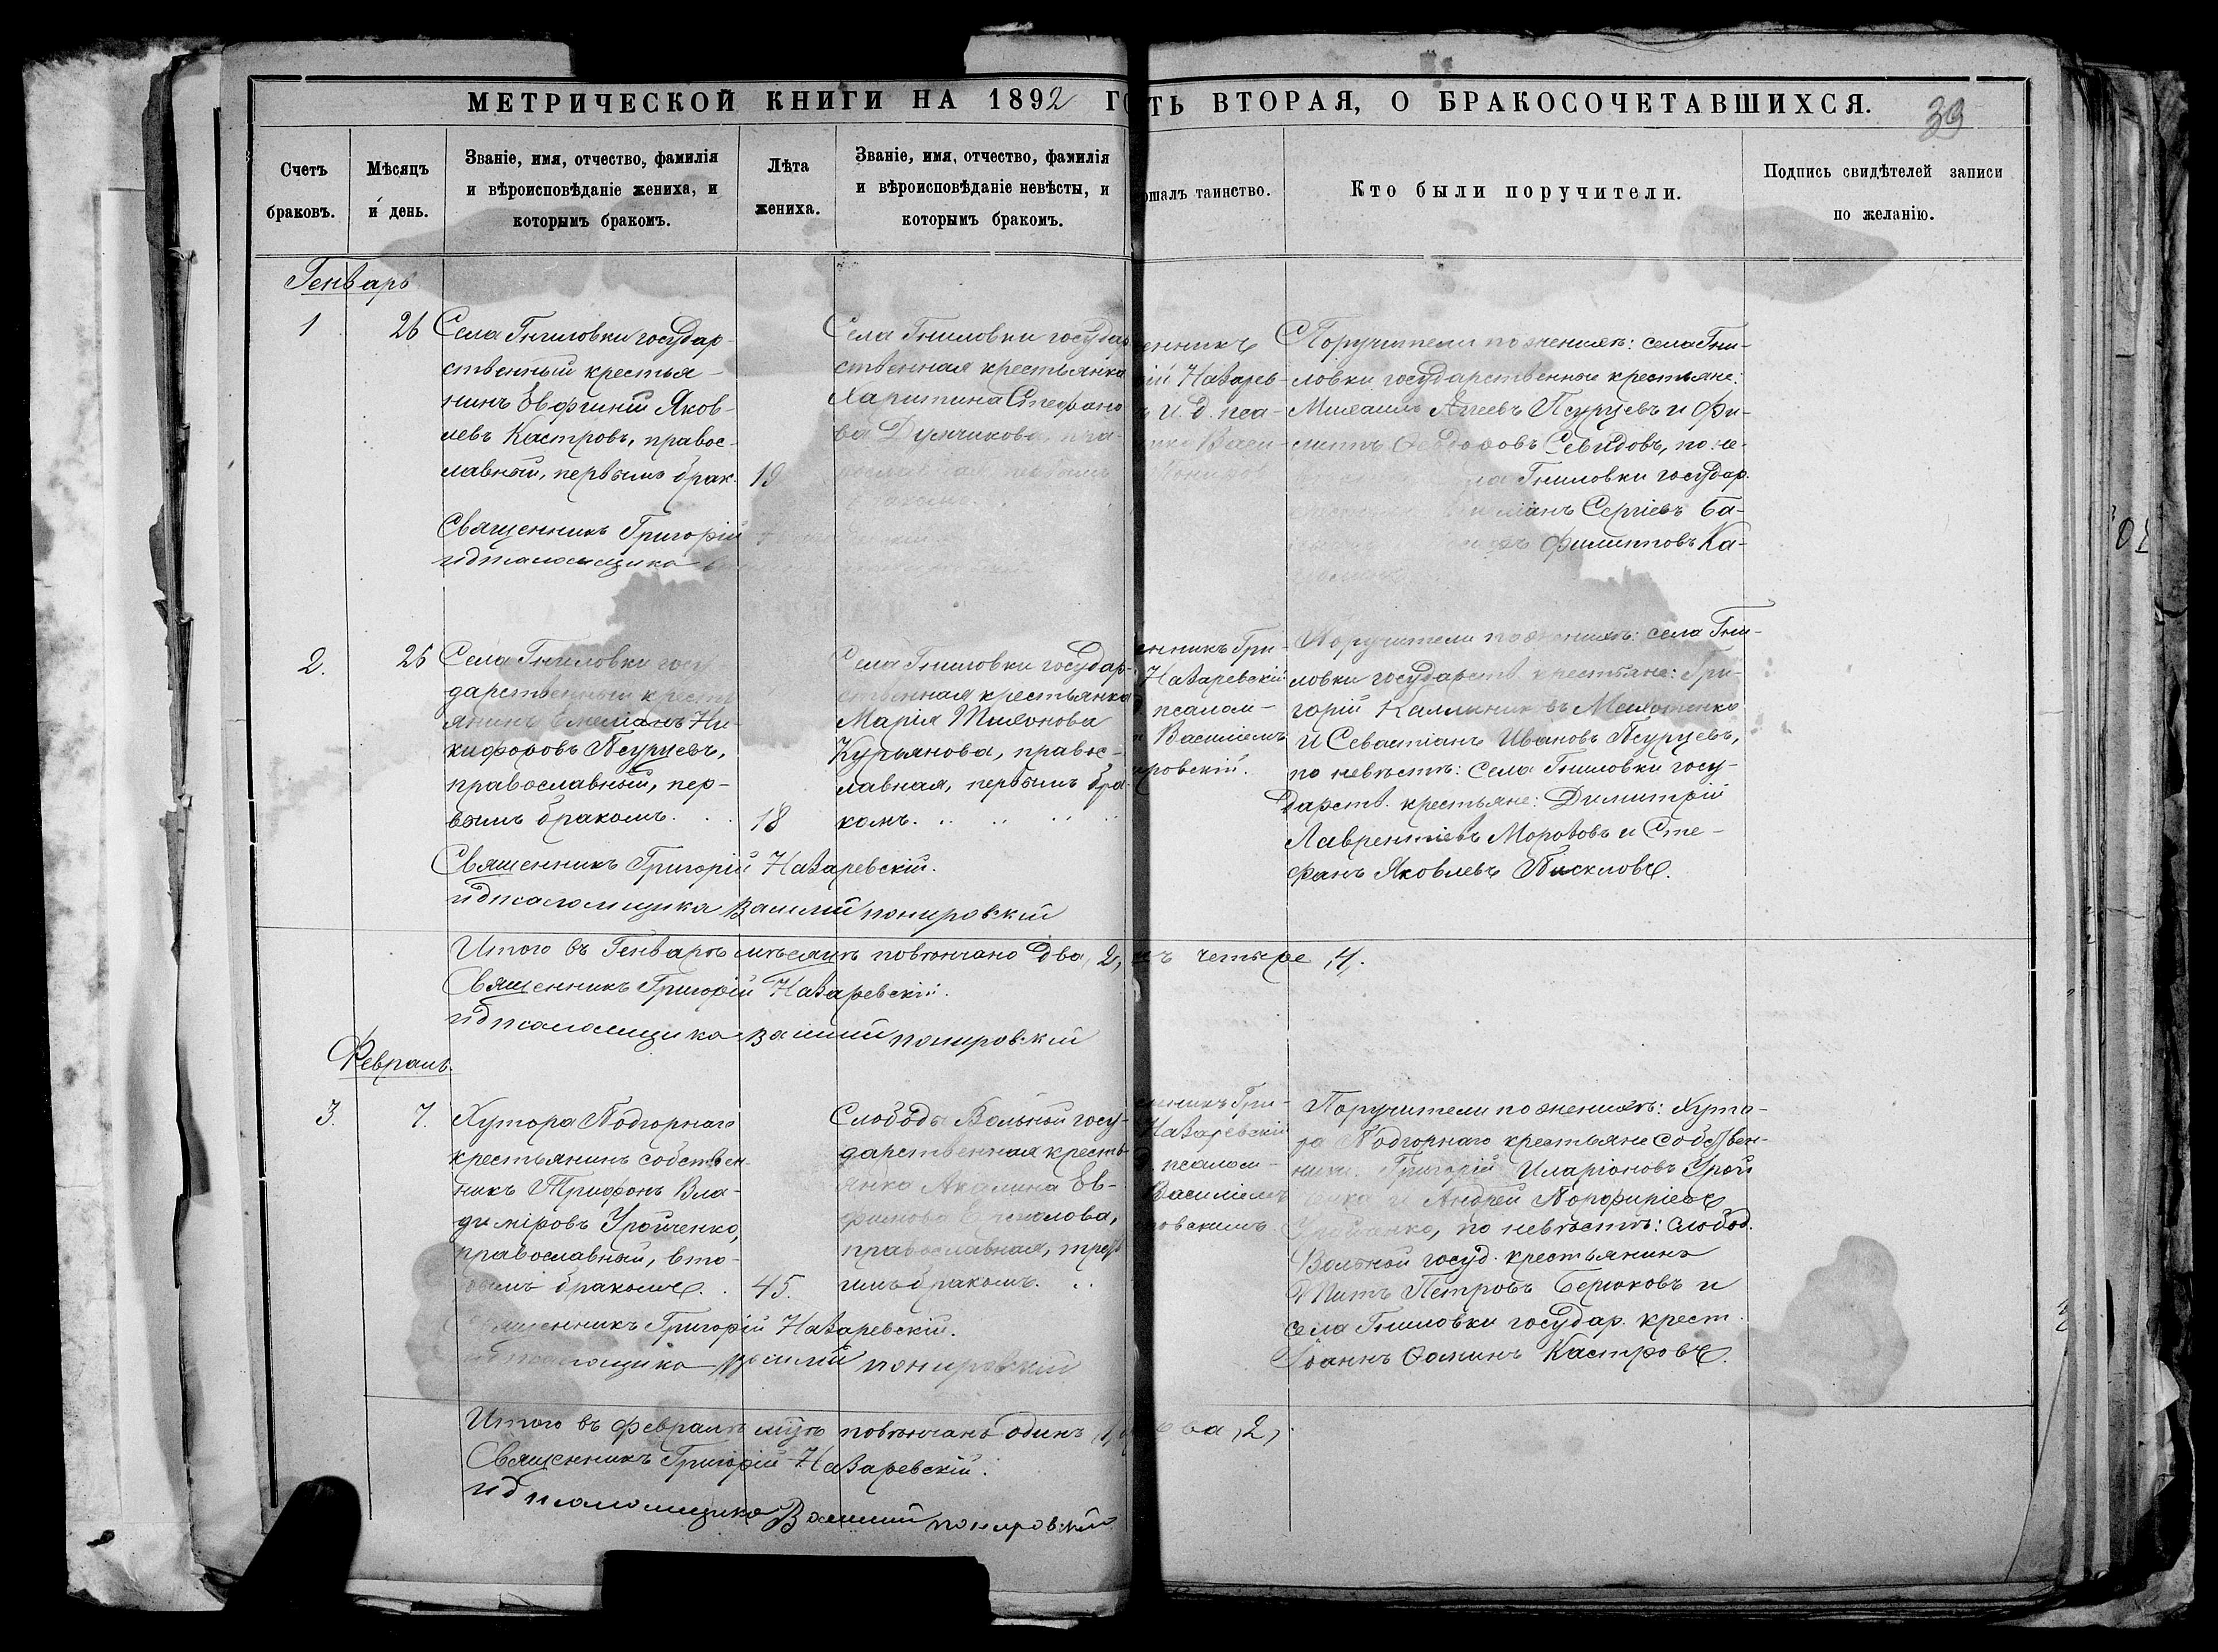 МЕТРИЧЕСКОЙ КНИГИ НА 1892 ГО
ТЬ ВТОРАЯ, О БРАКОСОЧЕТАВШИХСЯ.
39
Счетъ
браковъ.
Мѣсяцъ
и день.
Званіе, имя, отчество, фамилія
и вѣроисповѣданіе жениха, и
которымъ бракомъ.
Лѣта
жениха.
Званіе, имя, отчество, фамилія
и вѣроисповѣданіе невѣсты, и
которымъ бракомъ.
ршалъ таинство.
Кто были поручители.
Подпись свидѣтелей записи
по желанію.
Генварь
1
26
Села Гниловки государ-
ственный крестья-
нинъ Евфимій Яков-
левъ Кастровъ, правос-
лавный, первымъ брак.
19
Священникъ Григорій
и д псаломщика
Села Гниловки государ
ственная крестьянка
Харитина Стефано
ва
енникъ
ій Назарев-
и. д. пса-
Поручители по женихѣ: села Гни-
ловки государственные крестьяне:
Михаилъ Псурцевъ и Фи-
липпъ Ѳеодоровъ Севидовъ, по не-
Гниловки государ.
Сергіевъ Ба-
Филипповъ Ка-
2.
26
Села Гниловки госу-
дарственный кресть
янинъ Емеліанъ Ни-
кифоровъ Псурцевъ,
православный, пер-
вымъ бракомъ. . .
18
Села Гниловки государ-
ственная крестьянка
Марія Тихонова
Курьянова, правос-
лавная, первымъ бра-
комъ. .. .. .. ..
Священникъ Григорій Назаревскій.
и д псаломщика Василий понировскій
енникъ Гри-
Назаревскій
псалом-
Василіемъ
ировскій.
Поручители по женихѣ: села Гни-
ловки государств. крестьяне: Гри-
горій
и Севастіанъ Ивановъ Псурцевъ,
по невѣстѣ: Села Гниловки госу-
дарств. крестьяне: Димитрій
Лаврентіевъ Морозовъ и Сте-
фанъ Яковлевъ Пискловъ.
Итого въ Генварѣ мѣсяцѣ повѣнчано два, 2,
ъ четыре ,4,.
Священникъ Григорій Назаревскій.
и д псаломщика Василий понировскій
Февраль.
3.
7.
Хутора Подгорнаго
крестьянинъ собствен-
никъ Трифонъ Вла-
диміровъ Уройченко,
православный, вто-
рымъ бракомъ. .
45.
Слободы Вольной госу-
дарственная кресть-
янка Акилина Ев-
фимова
православная, треть
имъ бракомъ. ..
Священникъ Григорій Назаревскій.
и д псаломщика Василий понировскій
енникъ Гри-
Назаревскій
псалом-
Василіемъ
ровскимъ
Поручители по женихѣ: Хуто-
ра Подгорнаго крестьяне собствен-
ники: Григорій Иларіоновъ Урой
ченко и Андрей Порфиріевъ
Уройченко, по невѣстѣ: слобод.
Вольной госуд. крестьянинъ
Титъ Петровъ Бирюковъ и
села Гниловки государ. крест.
Іоаннъ Ѳоминъ Кастровъ.
Итого въ февралѣ мцѣ повѣнчанъ одинъ ,1,
два ,2,.
Священникъ Григорій Назаревскій.
и д псаломщика Василий понировскій